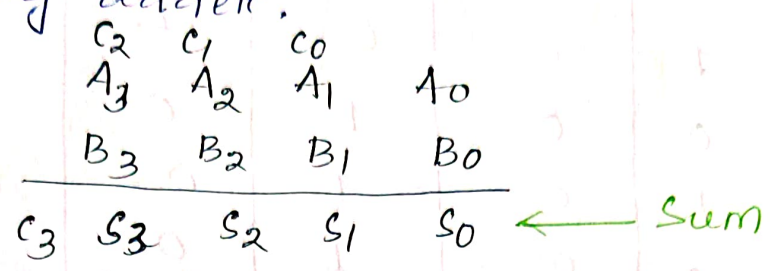 C2 C1 C0
A3 A2 A1 A0
B3 B2 B1 B0
C3 S3 S2 S1 S0 ← Sum